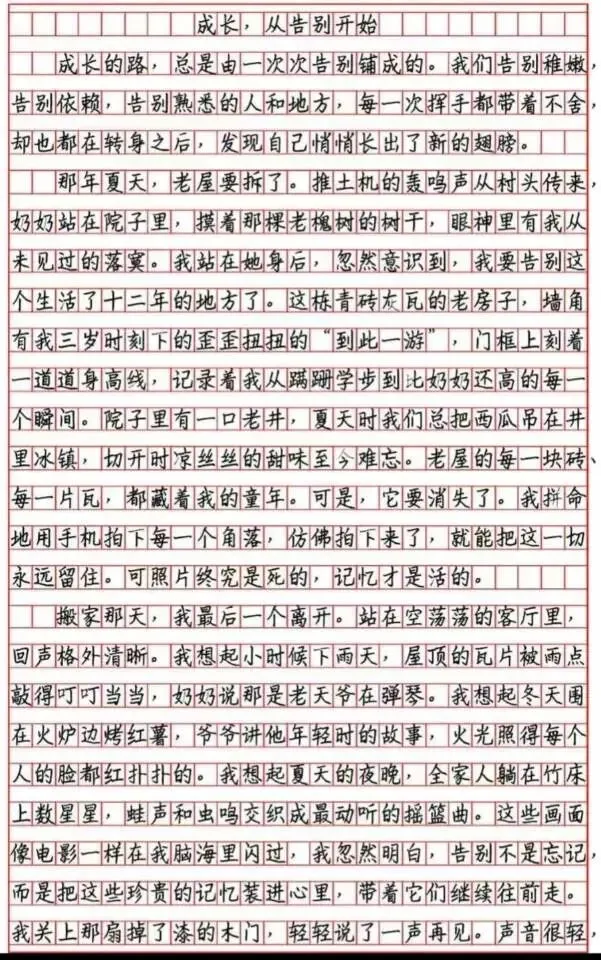 成长，从告别开始
成长的路，总是由一次次告别铺成的。我们告别稚嫩，
告别依赖，告别熟悉的人和地方，每一次挥手都带着不舍，
却也都在转身之后，发现自己悄悄长出了新的翅膀。
那年夏天，老屋要拆了。推土机的轰鸣声从村头传来，
奶奶站在院子里，摸着那棵老槐树的树干，眼神里有我从
未见过的落寞。我站在她身后，忽然意识到，我要告别这
个生活了十二年的地方了。这栋青砖灰瓦的老房子，墙角
有我三岁时刻下的歪歪扭扭的“到此一游”，门框上刻着
一道道身高线，记录着我从蹒跚学步到比奶奶还高的每一
个瞬间。院子里有一口老井，夏天时我们总把西瓜吊在井
里冰镇，切开时凉丝丝的甜味至今难忘。老屋的每一块砖、
每一片瓦，都藏着我的童年。可是，它要消失了。我拼命
地用手机拍下每一个角落，仿佛拍下来了，就能把这一切
永远留住。可照片终究是死的，记忆才是活的。
搬家那天，我最后一个离开。站在空荡荡的客厅里，
回声格外清晰。我想起小时候下雨天，屋顶的瓦片被雨点
敲得叮叮当当，奶奶说那是老天爷在弹琴。我想起冬天围
在火炉边烤红薯，爷爷讲他年轻时的故事，火光照得每个
人的脸都红扑扑的。我想起夏天的夜晚，全家人躺在竹床
上数星星，蛙声和虫鸣交织成最动听的摇篮曲。这些画面
像电影一样在我脑海里闪过，我忽然明白，告别不是忘记，
而是把这些珍贵的记忆装进心里，带着它们继续往前走。
我关上那扇掉了漆的木门，轻轻说了一声再见。声音很轻，